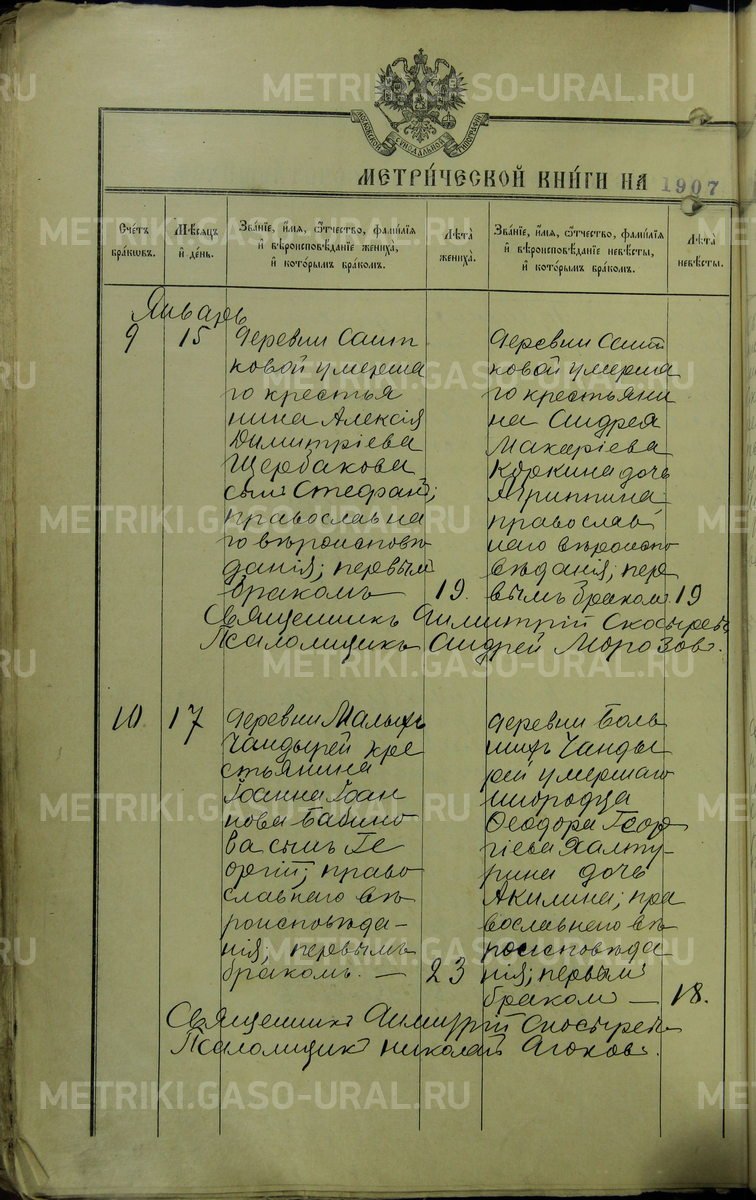 METRIKI.GASO-URAL.RU
МОСКОВСКОЙ СѴНОДАЛЬНОЙ ТИПОГРАФІИ
МЕТРИ́ЧЕСКОЙ КНИ́ГИ НА 1907
Сче́тъ бра́ковъ.
Мѣ́сяцъ и҆ де́нь.
Зва́нїе, и҆́мя, ѻ҆́тчество, фами́лїя и҆ вѣроисповѣ́данїе жениха̀, и҆ кото́рымъ бра́комъ.
Лѣ́та жениха̀.
Зва́нїе, и҆́мя, ѻ҆́тчество, фами́лїя и҆ вѣроисповѣ́данїе невѣ́сты, и҆ кото́рымъ бра́комъ.
Лѣ́та невѣ́сты.
Январь
9
15
деревни Саит
ковой умерша
го крестья
нина Алексія
Димитріева
Щербакова
сынъ Стефанъ;
православна
го вѣроисповѣ
данія; первымъ
бракомъ
19.
деревни Саит
ковой умерша
го крестьяни
на Андрея
Макаріева
Коркина дочь
Агриппина
православ
наго вѣроиспо
вѣданія; пер
вымъ бракомъ
19
Священникъ Димитрій Скосыревъ
Псаломщикъ Андрей Морозовъ.
10
17
деревни Малыхъ
Чандырей кре
стьянина
Іоанна Іоан
нова Бабино
ва сынъ Ге
оргій; право
славнаго вѣ
роисповѣда-
нія; первымъ
бракомъ. —
23
деревни Боль
шихъ Чанды
рей умершаго
инородца
Ѳеодора Геор
гіева Халту
рина дочь
Акилина; пра
вославнаго вѣ
роисповѣда
нія; первымъ
бракомъ —
18.
Священникъ Димитрій Скосыревъ
Псаломщикъ Николай